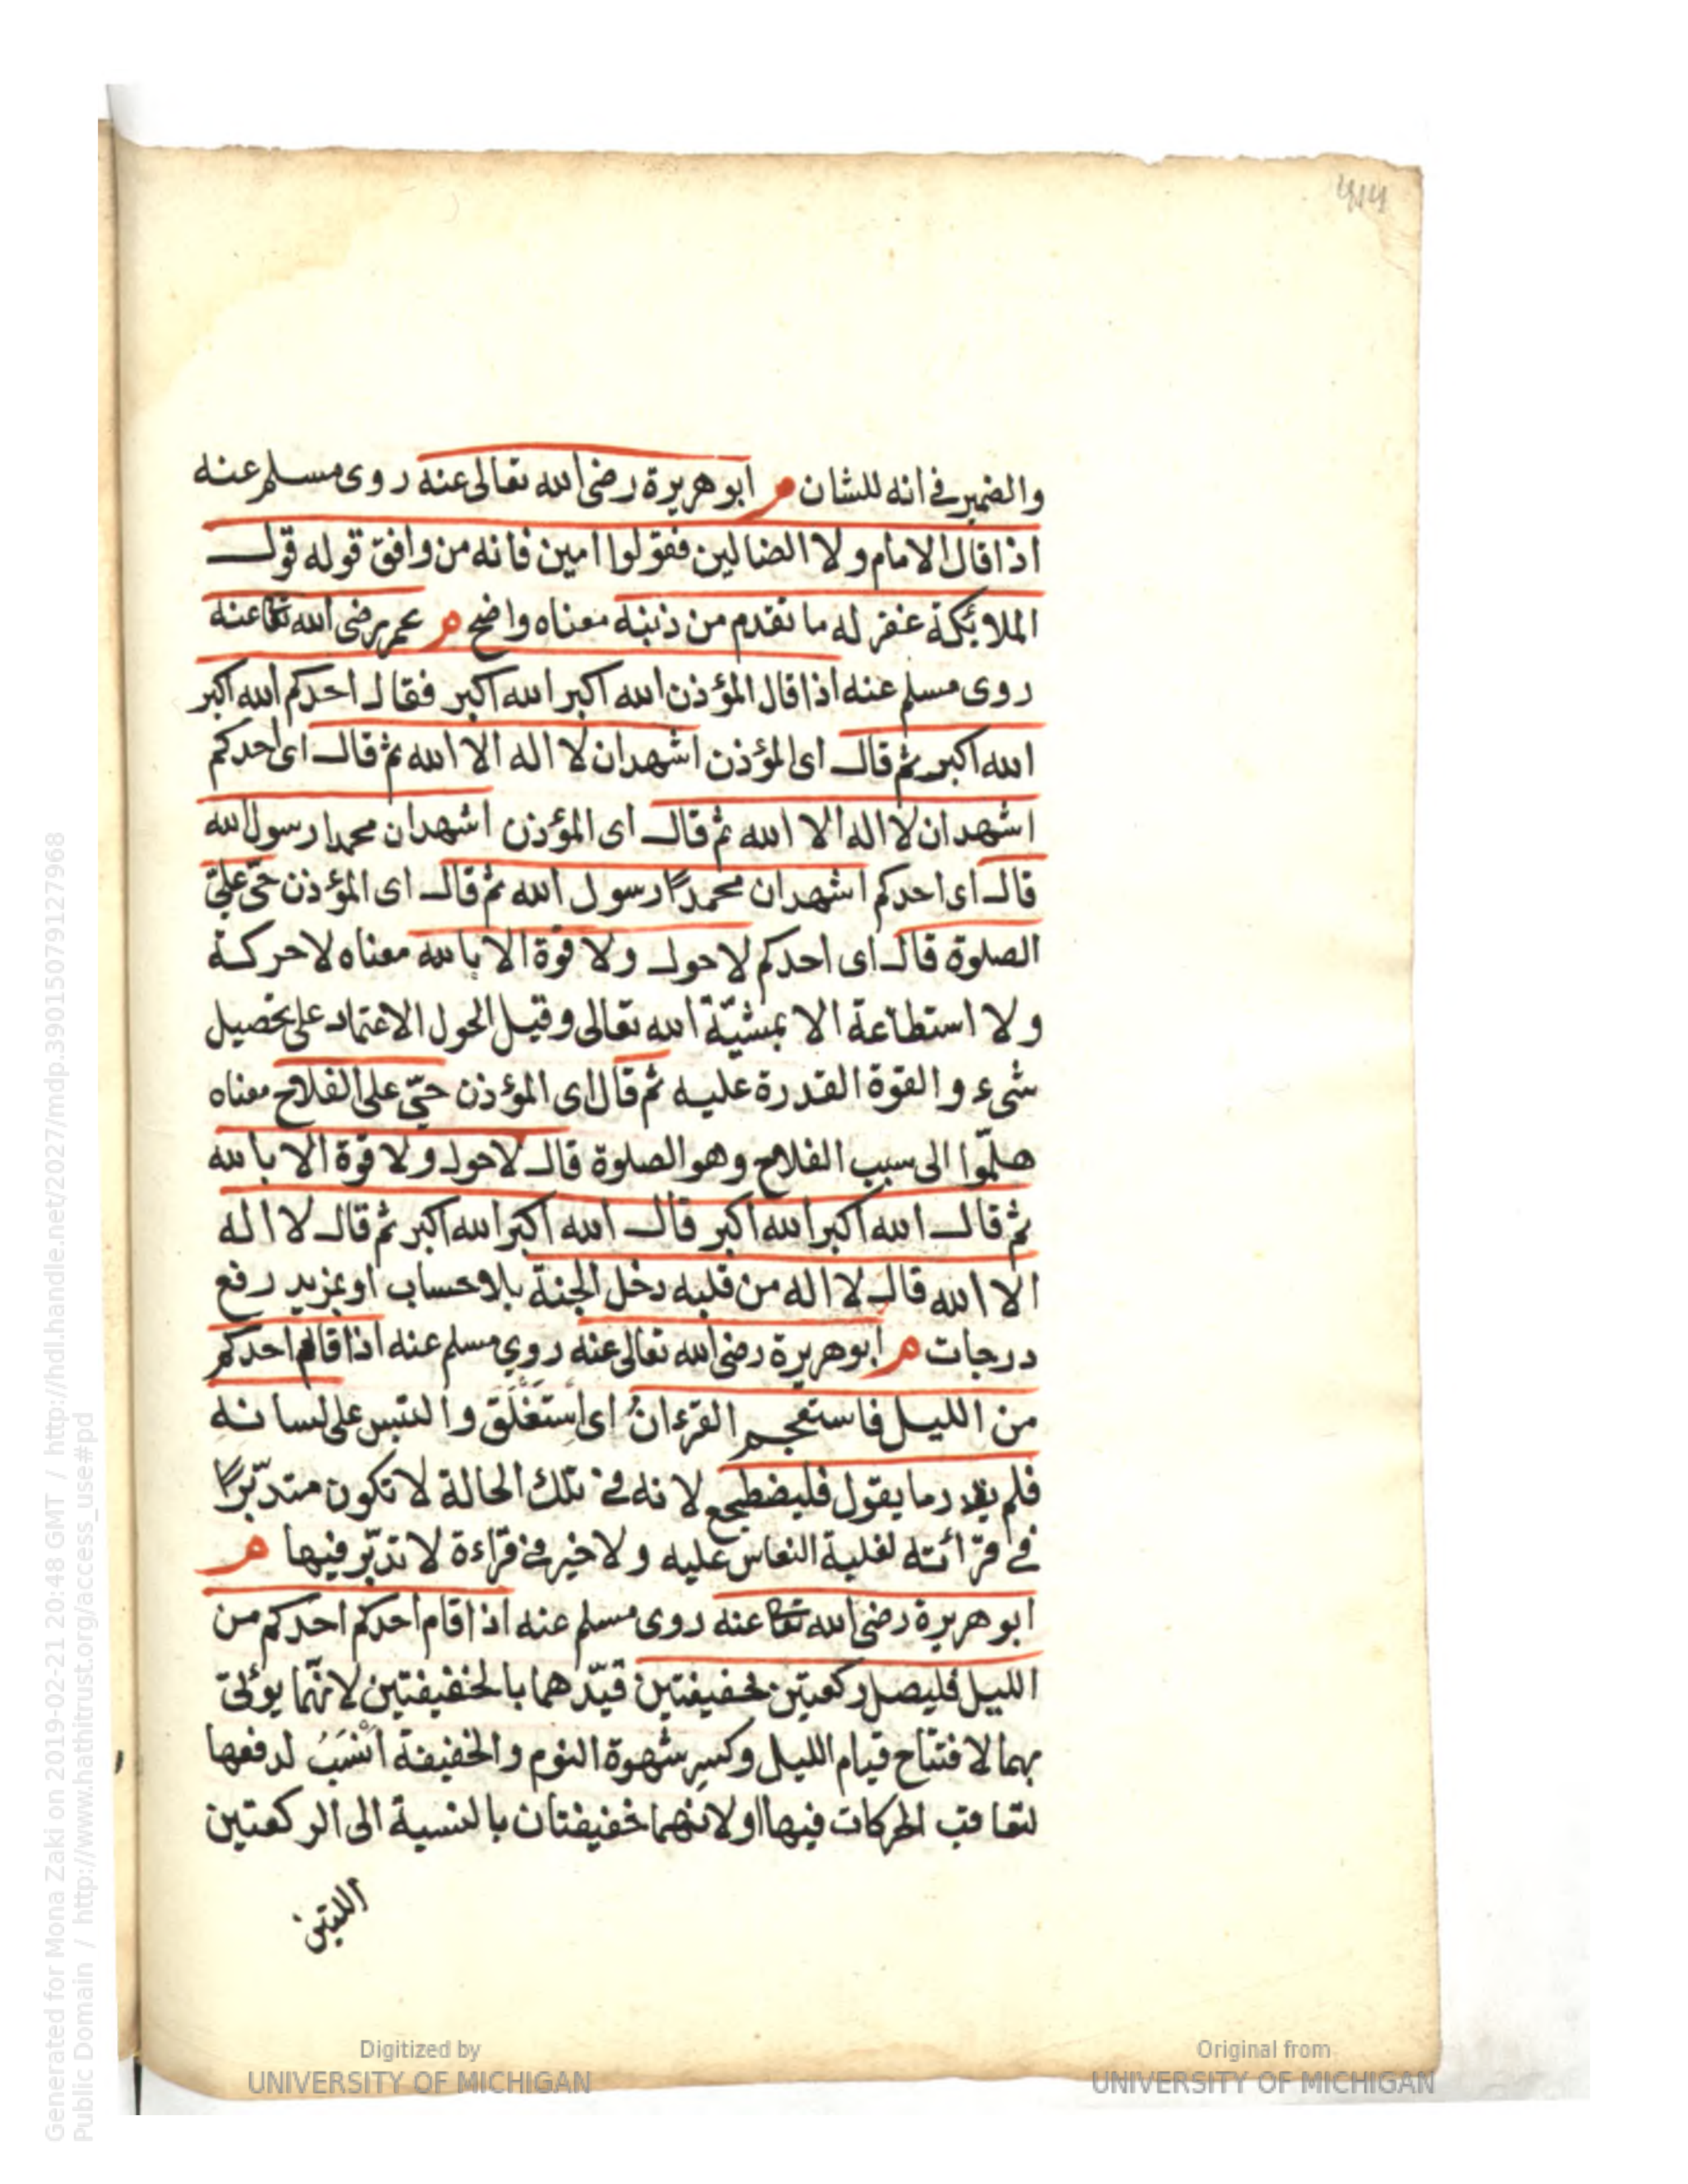 والضمير في انه للشان م ابو هريرة رضى الله تعالى عنه روى مسلم عنه
اذا قال الامام ولا الضالين فقولوا امين فانه من وافق قوله قول
الملائكة غفر له ما تقدم من ذنبه معناه واضح م عمر رضى الله تعا عنه
روى مسلم عنه اذا قال المؤذن الله اكبر الله اكبر فقال احدكم الله اكبر
الله اكبر ثم قال اى المؤذن اشهد ان لا اله الا الله ثم قال اى احدكم
اشهد ان لا اله الا الله ثم قال اى المؤذن اشهد ان محمدا رسول الله
قال اى احدكم اشهد ان محمدًا رسول الله ثم قال اى المؤذن حىّ على
الصلوة قال اى احدكم لا حول ولا قوة الا بالله معناه لا حركة
ولا استطاعة الا بمشيّة الله تعالى وقيل الحول الاعتماد على تحصيل
شىء والقوة القدرة عليه ثم قال اى المؤذن حىّ على الفلاح معناه
هلمّوا الى سبب الفلاح وهو الصلوة قال لا حول ولا قوة الا بالله
ثم قال الله اكبر الله اكبر قال الله اكبر الله اكبر ثم قال لا اله
الا الله قال لا اله من قلبه دخل الجنة بلا حساب او بمزيد رفع
درجات م ابو هريرة رضى الله تعالى عنه روي مسلم عنه اذا قام احدكم
من الليل فاستعجم القرءانُ اى استَغْلَق والتبس على لسانه
فلم يدر ما يقول فليضطجع لانه في تلك الحالة لا تكون متدبّرًا
في قرأئته لغلبة النعاس عليه ولا خير في قراءة لا تدبّر فيها م
ابو هريرة رضى الله تعا عنه روى مسلم عنه اذا قام احدكم احدكم من
الليل فليصل ركعتين خفيفتين قيّدهما بالخفيفتين لانّهما يؤتى
بهما لافتتاح قيام الليل وكسرِ شهوة النوم والخفيفة اَنْسَبُ لدفعها
لتعاقب الحركات فيها او لانهما خفيفتان بالنسبة الى الركعتين
اللتين
Generated for Mona Zaki on 2019-02-21 20:48 GMT / http://hdl.handle.net/2027/mdp.39015079127968
Public Domain / http://www.hathitrust.org/access_use#pd
Digitized by
UNIVERSITY OF MICHIGAN
Original from
UNIVERSITY OF MICHIGAN